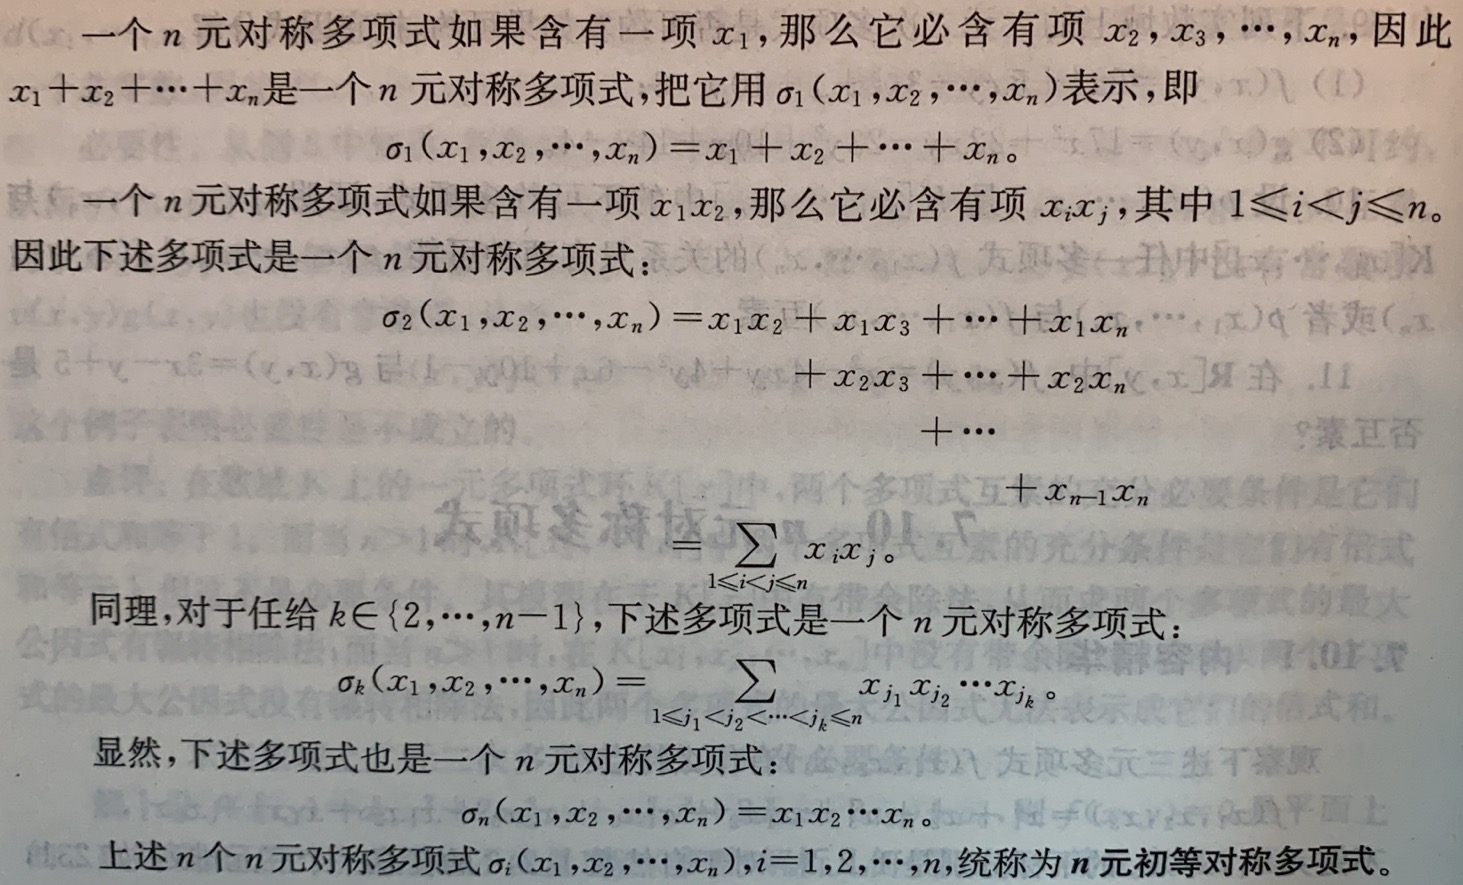 一个 n 元对称多项式如果含有一项 x₁,那么它必含有项 x₂,x₃,⋯,xₙ,因此
x₁+x₂+⋯+xₙ是一个 n 元对称多项式,把它用 σ₁(x₁,x₂,⋯,xₙ)表示,即
σ₁(x₁,x₂,⋯,xₙ)=x₁+x₂+⋯+xₙ。
一个 n 元对称多项式如果含有一项 x₁x₂,那么它必含有项 xᵢxⱼ,其中 1≤i<j≤n。
因此下述多项式是一个 n 元对称多项式:
σ₂(x₁,x₂,⋯,xₙ)=x₁x₂+x₁x₃+⋯+x₁xₙ
+x₂x₃+⋯+x₂xₙ
+⋯
+xₙ₋₁xₙ
=∑xᵢxⱼ。
1≤i<j≤n
同理,对于任给 k∈{2,⋯,n−1},下述多项式是一个 n 元对称多项式:
σₖ(x₁,x₂,⋯,xₙ)=∑ x_{j₁}x_{j₂}⋯x_{jₖ}。
1≤j₁<j₂<⋯<jₖ≤n
显然,下述多项式也是一个 n 元对称多项式:
σₙ(x₁,x₂,⋯,xₙ)=x₁x₂⋯xₙ。
上述 n 个 n 元对称多项式σᵢ(x₁,x₂,⋯,xₙ),i=1,2,⋯,n,统称为 n 元初等对称多项式。